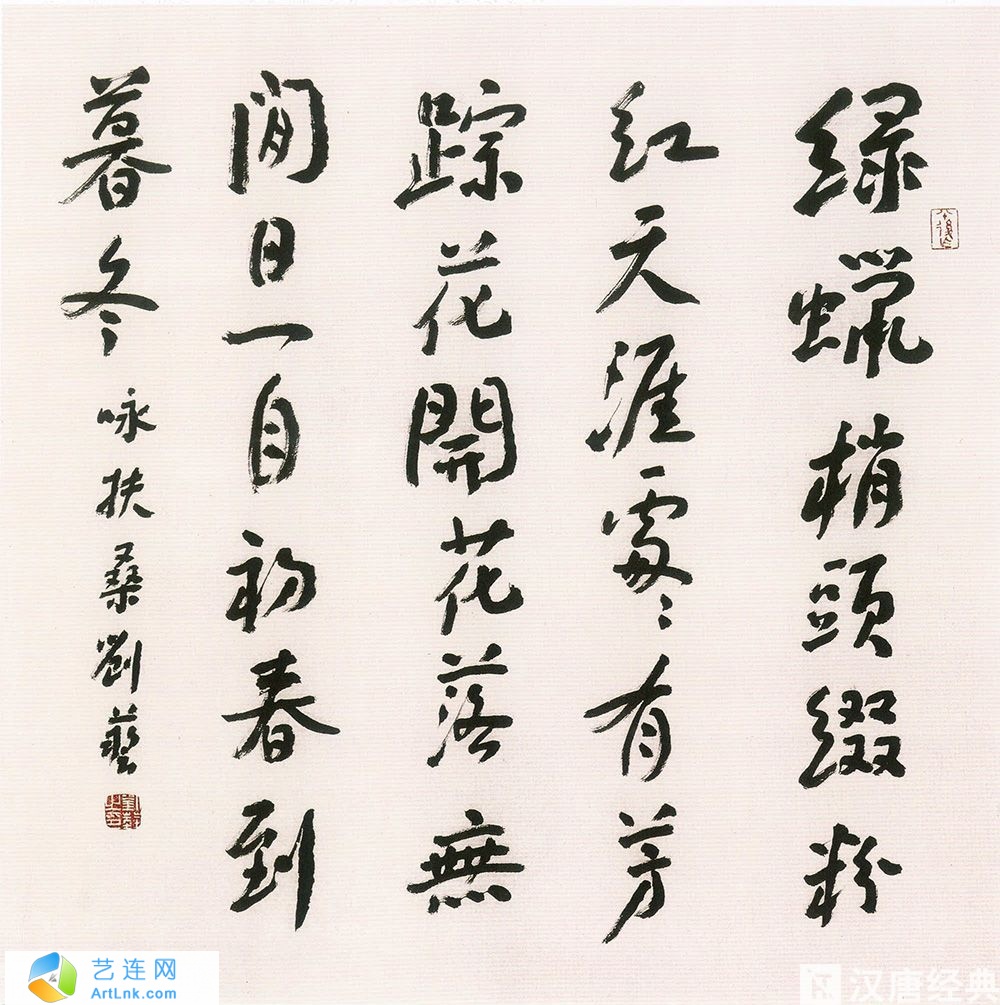 绿蜡梢頭缀粉
红天涯處處有芳
踪花開花落無
閒日一自初春到
暮冬 咏扶桑劉藝
艺连网
ArtLnk.com
汉唐经典